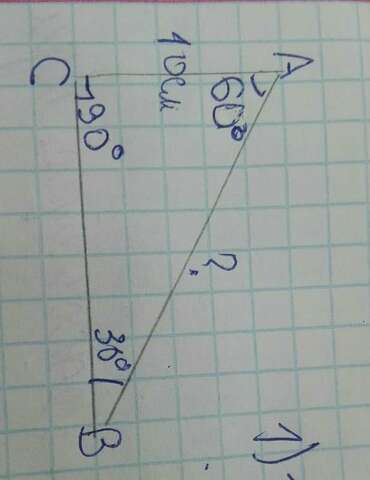 1)
A
60°
10см
C
90°
?
30°
B